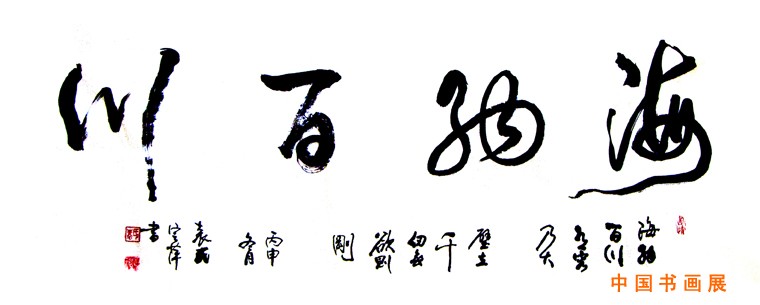 海纳百川
海纳
百川
有容
乃大
壁立
千
仞无
欲则
剛
丙申
冬月
書
中国书画展